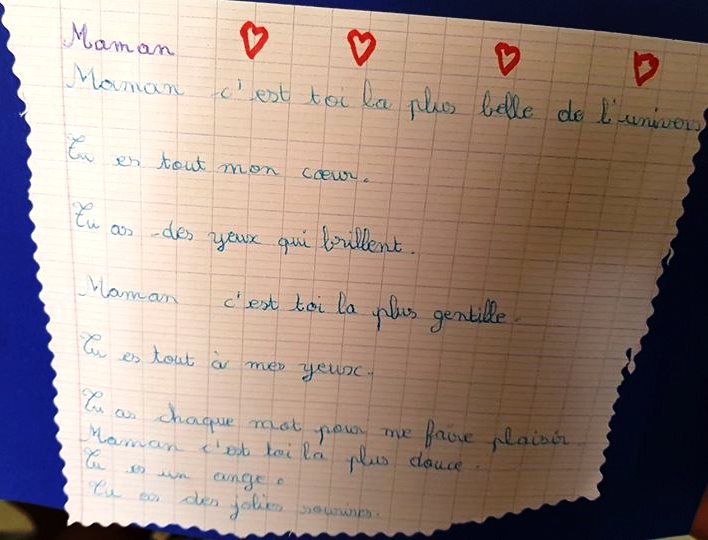 Maman
Maman c'est toi la plus belle de l'univers
Tu es tout mon cœur.
Tu as des yeux qui brillent.
Maman c'est toi la plus gentille.
Tu es tout à mes yeux.
Tu as chaque mot pour me faire plaisir.
Maman c'est toi la plus douce.
Tu es un ange.
Tu as des jolies sourires.